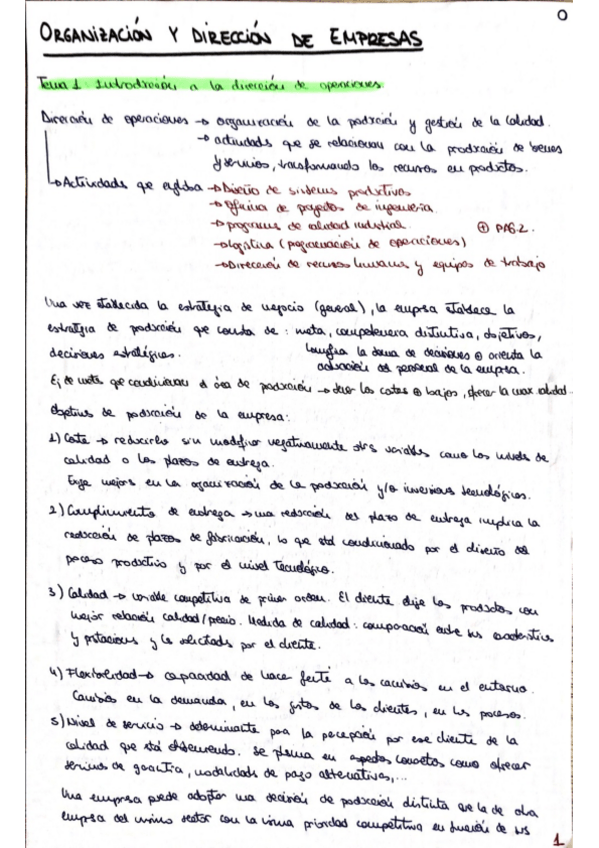 0
ORGANIZACIÓN Y DIRECCIÓN DE EMPRESAS
Tema 1: Introducción a la dirección de operaciones
Dirección de operaciones → organización de la producción y gestión de la Calidad.
→ actividades que se relacionan con la producción de bienes
y servicios, transformando los recursos en productos.
→ Actividades que engloba → Diseño de sistemas productivos
→ oficina de proyectos de ingeniería
→ programas de calidad industrial.
⊕ PAG.2.
→ logística (programación de operaciones)
→ Dirección de recursos humanos y equipos de trabajo
Una vez establecida la estrategia de negocio (general), la empresa establece la
estrategia de producción que consta de: meta, competencia distintiva, objetivos,
decisiones estratégicas.
la toma de decisiones ⊕ orienta la
actuación del personal de la empresa.
Ej. de meta que condicionan el área de producción → tener los costes ⊕ bajos, ofrecer la max calidad.
Objetivos de producción de la empresa:
1) Coste → reducirlos sin modificar negativamente otras variables como los niveles de
calidad o los plazos de entrega.
Exige mejoras en la organización de la producción y/o inversiones tecnológicas.
2) Cumplimiento de entrega → una reducción del plazo de entrega implica la
reducción de plazos de fabricación, lo que está condicionado por el diseño del
proceso productivo y por el nivel tecnológico.
3) Calidad → variable competitiva de primer orden. El cliente elige los productos con
mejor relación calidad/precio. Medida de calidad: comparación entre sus características
y prestaciones y lo solicitado por el cliente.
4) Flexibilidad → capacidad de hacer frente a los cambios en el entorno.
Cambios en la demanda, en los gustos de los clientes, en los procesos.
5) Nivel de servicio → determinante para la percepción por ese cliente de la
calidad que está obteniendo. Se plasma en aspectos concretos como ofrecer
servicios de garantía, modalidades de pago alternativas,...
Una empresa puede adoptar una decisión de producción distinta que la de otra
empresa del mismo sector con la misma prioridad competitiva en función de sus
1